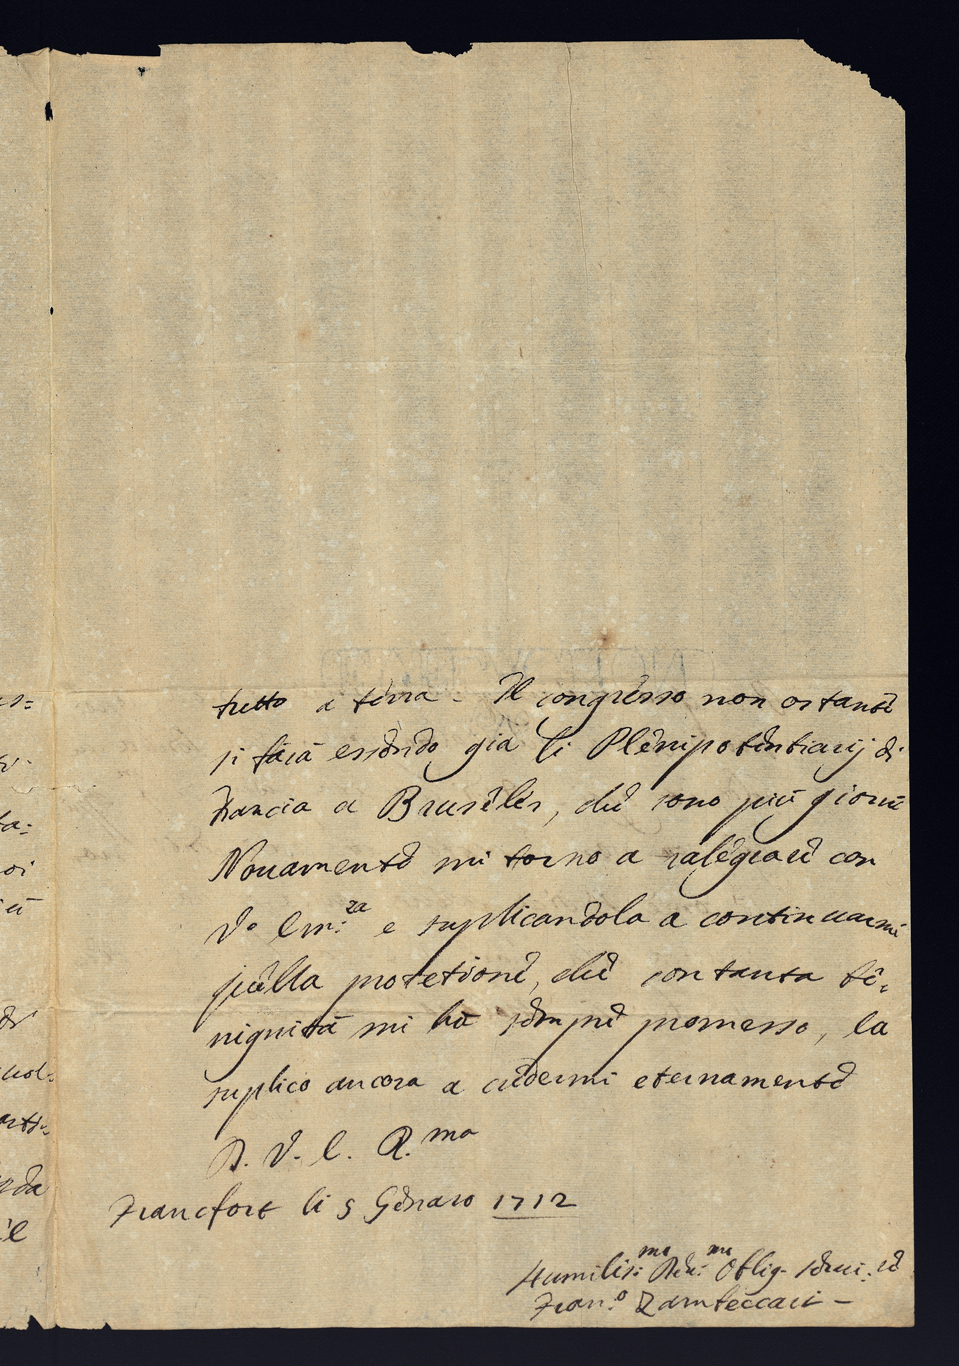 tutto a terra. Il congresso non ostante
si farà essendo già li Plenipotentiarij di
Francia a Bruseles, che sono più giorni
Nouamente mi torno a ralegrare con
V. Em.za e suplicandola a continuarmi
quella protetione, che con tanta be,
nignità mi ha sempre promesso, la
suplico ancora a credermi eternamente
D. V. E. R.ma
Francfort li 5 Genaro 1712
Humilis:mo Deu:mo Oblig. serui:re
Fran.o Zambeccari